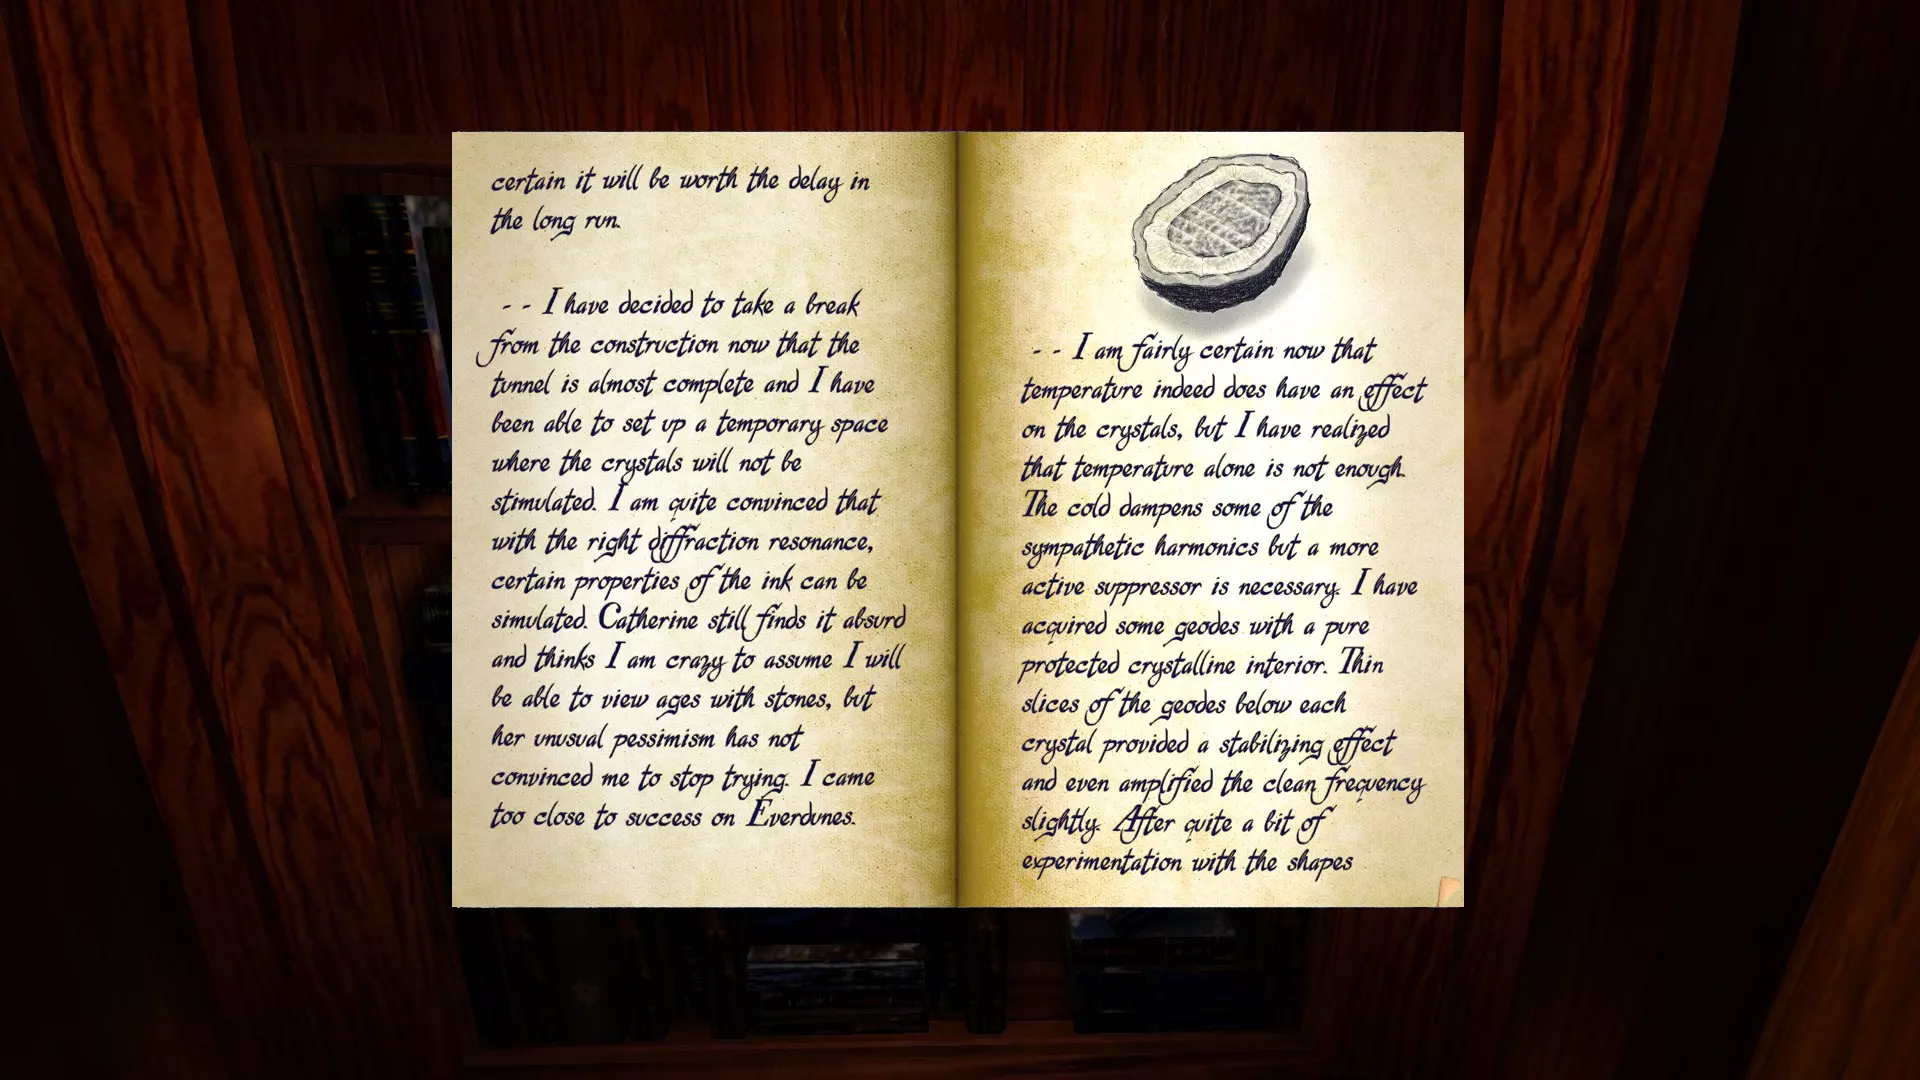 certain it will be worth the delay in
the long run.
- - I have decided to take a break
from the construction now that the
tunnel is almost complete and I have
been able to set up a temporary space
where the crystals will not be
stimulated. I am quite convinced that
with the right diffraction resonance,
certain properties of the ink can be
simulated. Catherine still finds it absurd
and thinks I am crazy to assume I will
be able to view ages with stones, but
her unusual pessimism has not
convinced me to stop trying. I came
too close to success on Everdunes.
- - I am fairly certain now that
temperature indeed does have an effect
on the crystals, but I have realized
that temperature alone is not enough.
The cold dampens some of the
sympathetic harmonics but a more
active suppressor is necessary. I have
acquired some geodes with a pure
protected crystalline interior. Thin
slices of the geodes below each
crystal provided a stabilizing effect
and even amplified the clean frequency
slightly. After quite a bit of
experimentation with the shapes